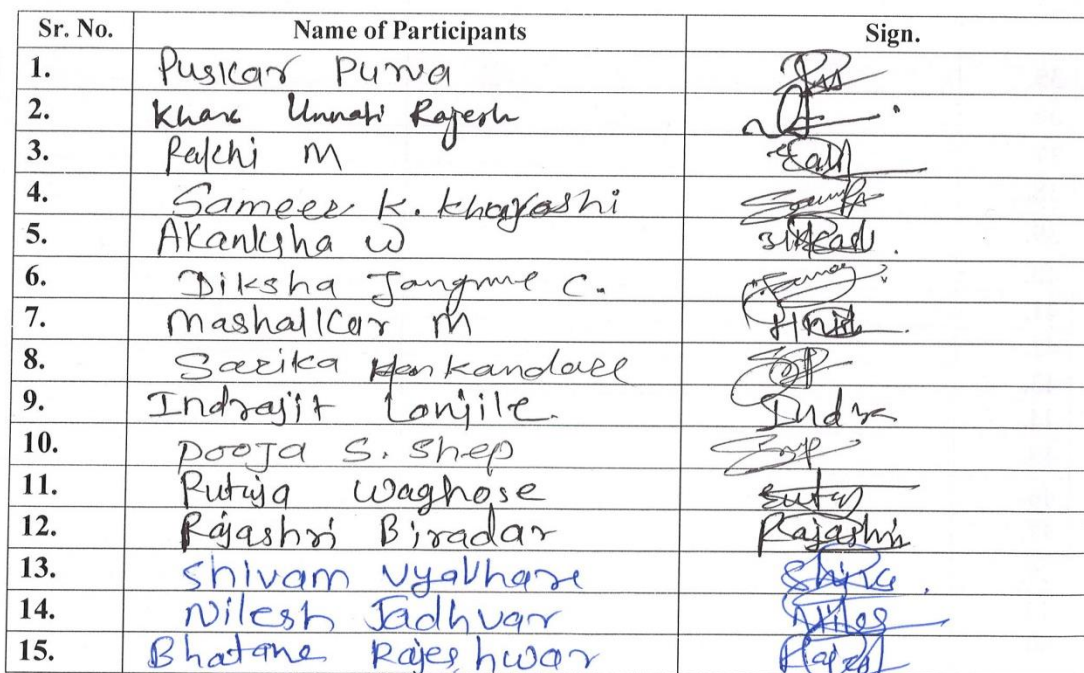 Sr. No. Name of Participants Sign.
1. Puskar Purva
2. Khare Unnati Rajesh
3. Palkhi M
4. Sameer K. Khayashi
5. Akanksha W
6. Diksha Jangme C.
7. Mashalkar M
8. Sarika Hankandare
9. Indrajit Lonjile. Indra
10. Pooja S. Shep
11. Rutuja Waghose
12. Rajashri Biradar Rajashri
13. Shivam Vyavhare
14. Nilesh Jadhvar Niles
15. Bhatane Rajeshwar